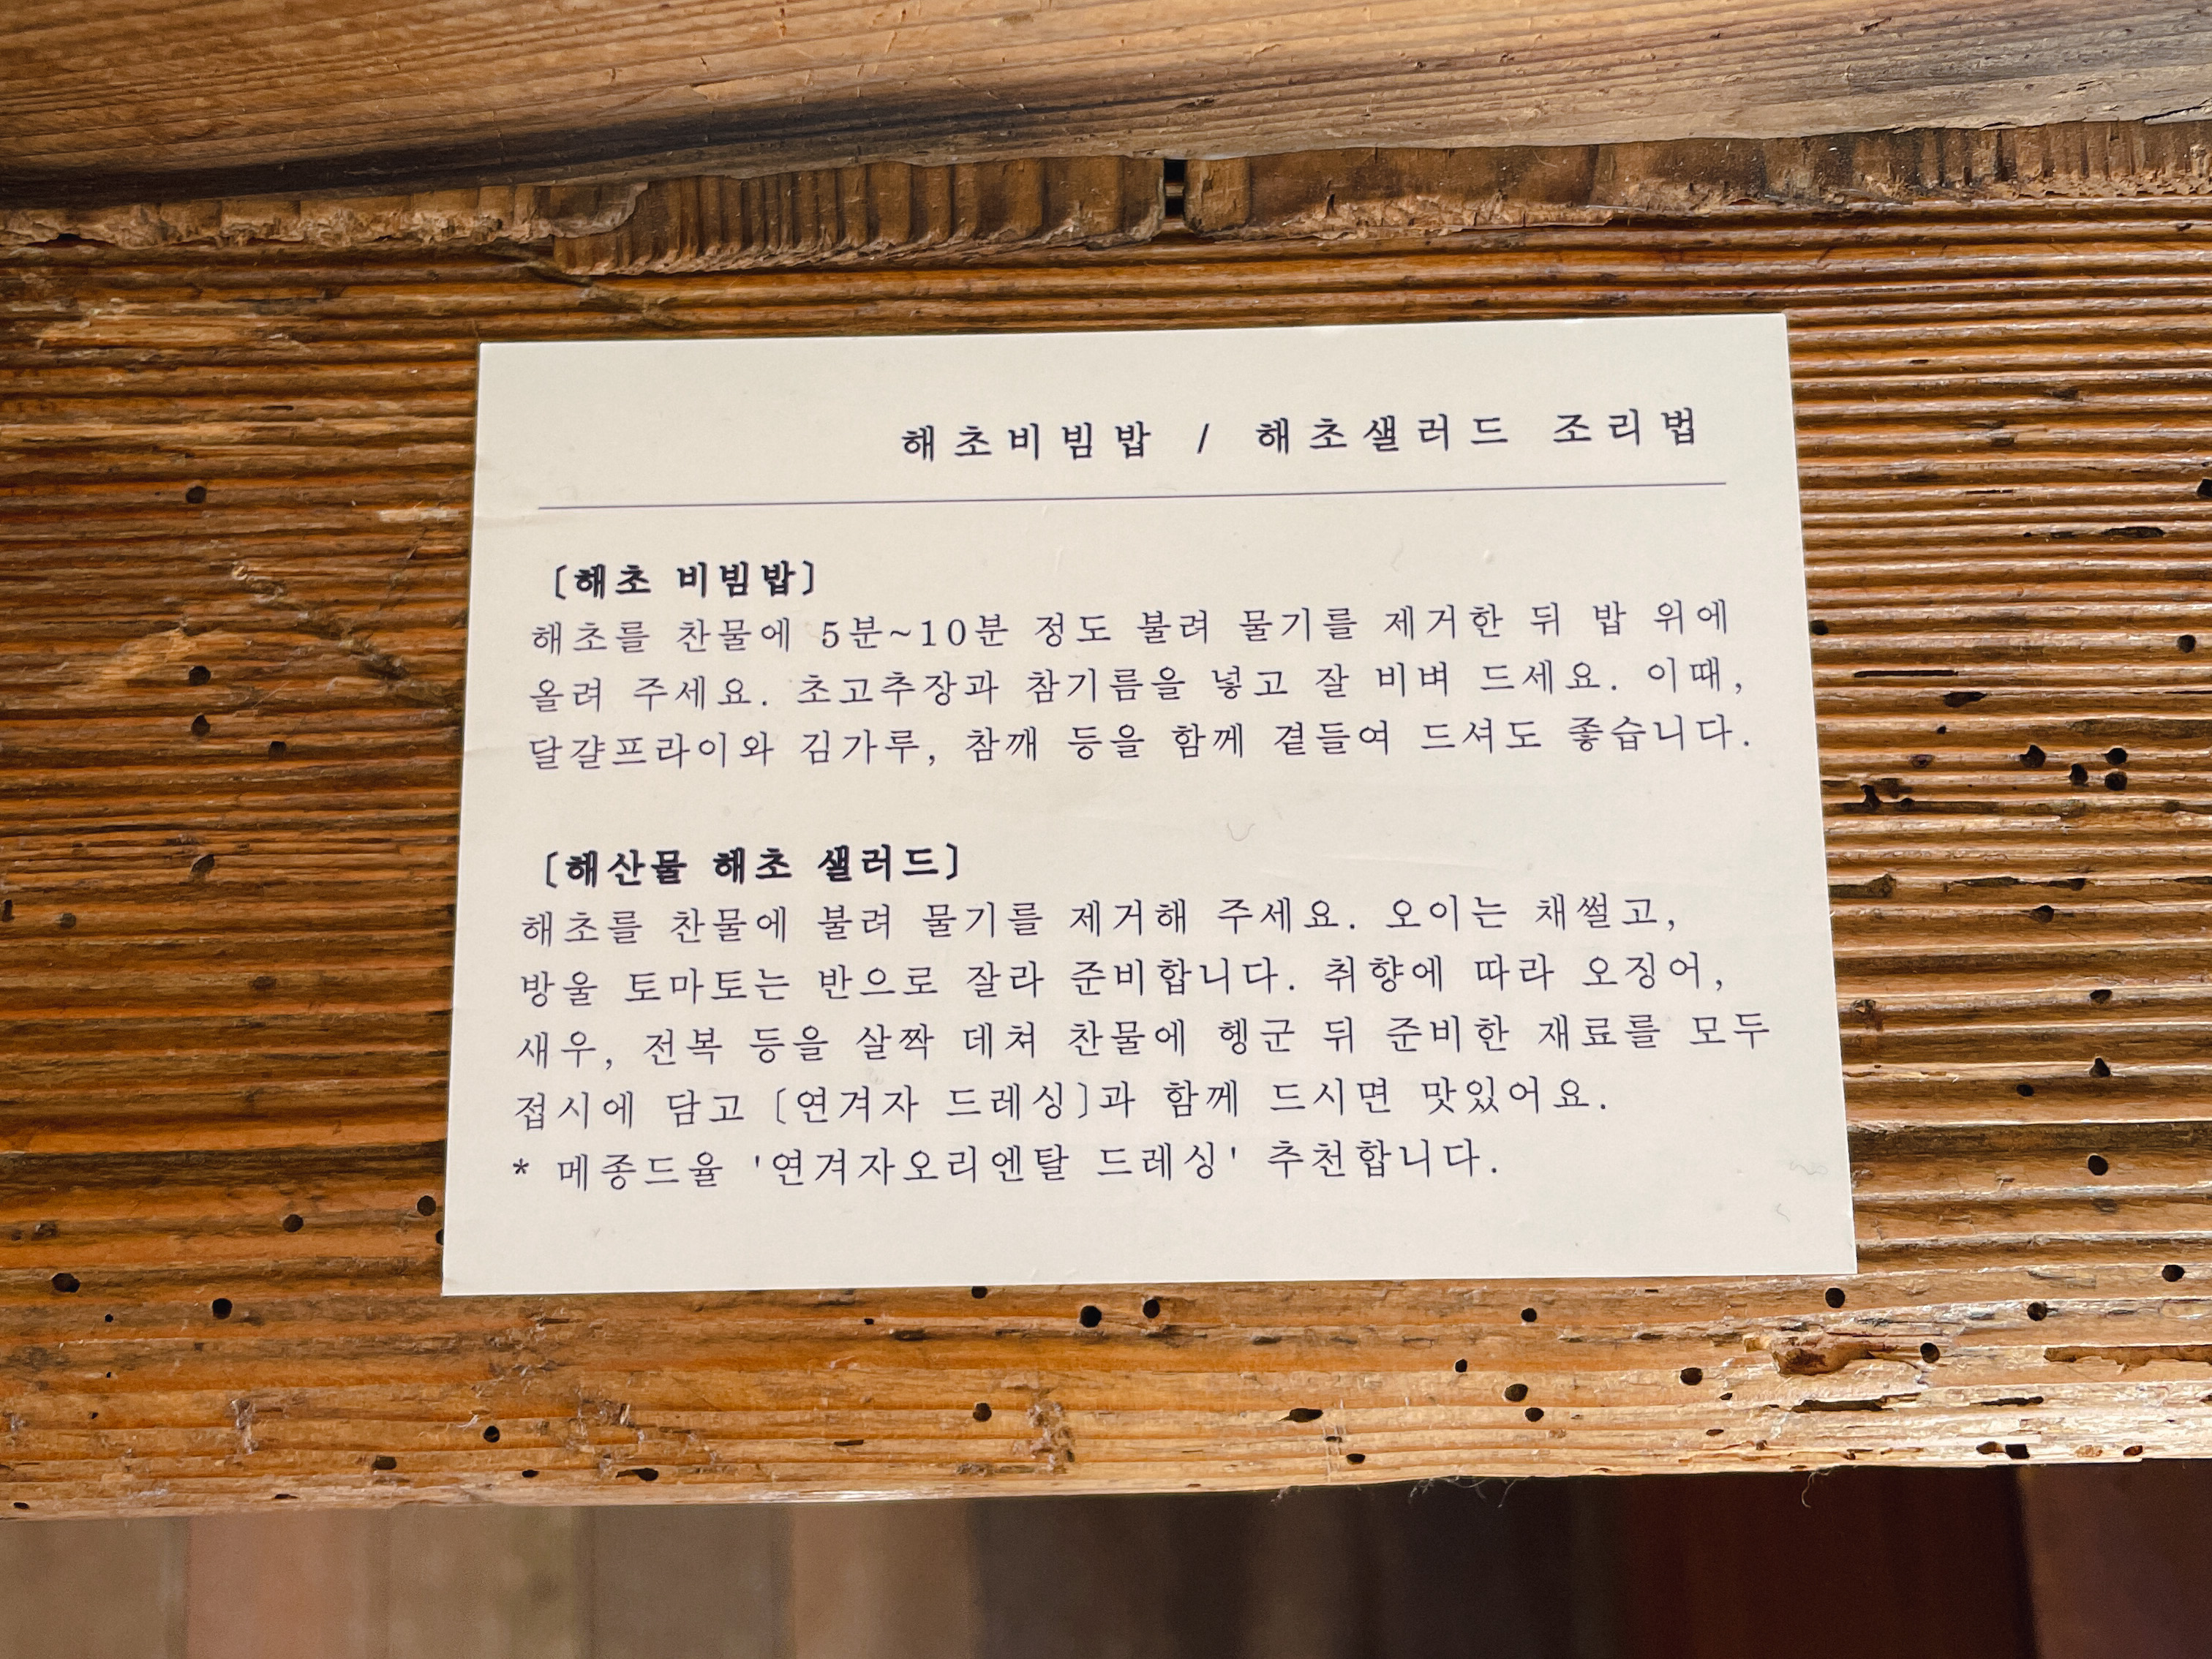 해초비빔밥 / 해초샐러드 조리법
[해초 비빔밥]
해초를 찬물에 5분~10분 정도 불려 물기를 제거한 뒤 밥 위에
올려 주세요. 초고추장과 참기름을 넣고 잘 비벼 드세요. 이때,
달걀프라이와 김가루, 참깨 등을 함께 곁들여 드셔도 좋습니다.
[해산물 해초 샐러드]
해초를 찬물에 불려 물기를 제거해 주세요. 오이는 채썰고,
방울 토마토는 반으로 잘라 준비합니다. 취향에 따라 오징어,
새우, 전복 등을 살짝 데쳐 찬물에 헹군 뒤 준비한 재료를 모두
접시에 담고 [연겨자 드레싱]과 함께 드시면 맛있어요.
* 메종드율 '연겨자오리엔탈 드레싱' 추천합니다.